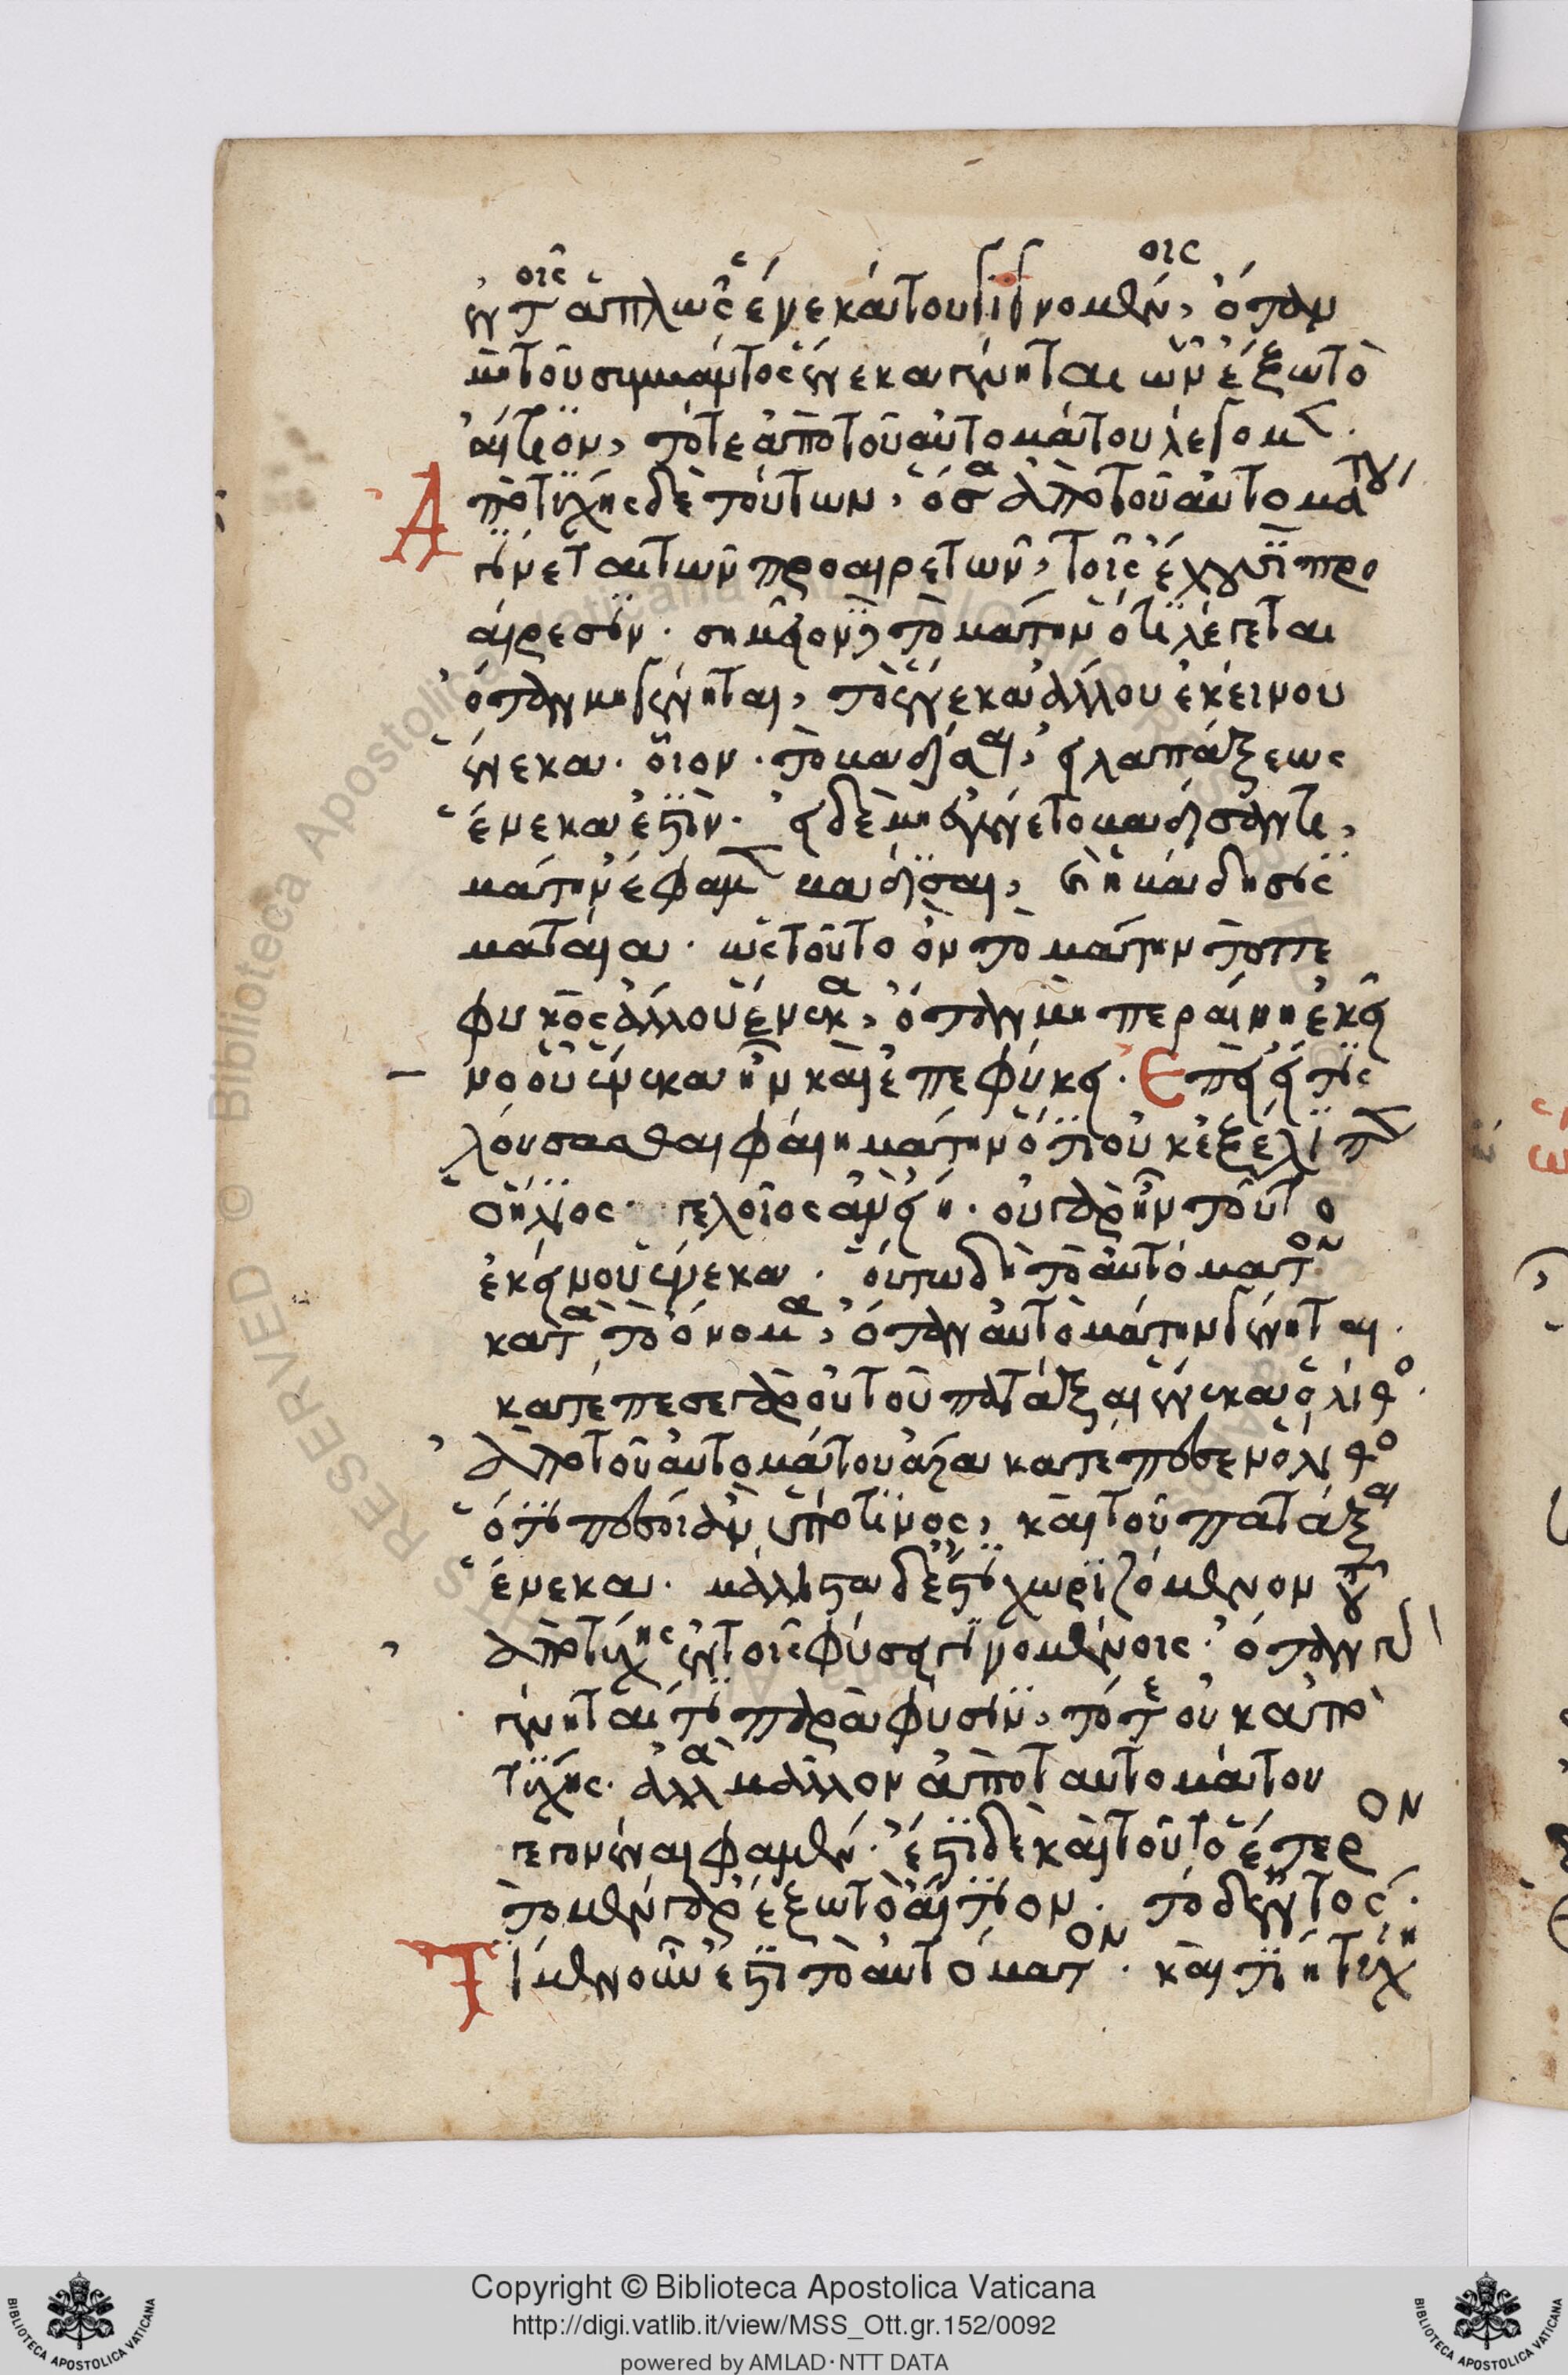 ἐν τοῖς ἁπλῶς ἕνεκά του γιγνομένοις, ὅταν
μὴ τοῦ συμβάντος ἕνεκα γένηται ὧν ἔξω τὸ
αἴτιον, τότε ἀπὸ τοῦ αὐτομάτου λέγομεν.
Ἀπὸ τύχης δὲ τούτων, ὅσα ἀπὸ τοῦ αὐτομάτου
γίνεται τῶν προαιρετῶν, τοῖς ἔχουσι προ
αίρεσιν. σημεῖον δὲ τὸ μάτην ὅτι λέγεται
ὅταν μὴ γένηται, τὸ ἕνεκα ἄλλου ἐκείνου
ἕνεκα. οἷον. τὸ βαδίσαι, εἰ λαπάξεως
ἕνεκα ἐστίν. εἰ δὲ μὴ ἐγένετο βαδίσαντι,
μάτην ἔφαμεν βαδίσαι, καὶ ἡ βάδισις
ματαία. ὡς τοῦτο ὂν τὸ μάτην τὸ πε
φυκὸς ἄλλου ἕνεκα, ὅταν μὴ περαίνη ἐκεῖ
νο οὗ ἕνεκα ἦν καὶ ἐπεφύκει. Ἐπεὶ εἴ τις
λούσασθαι φαίη μάτην ὅτι οὐκ ἐξέλιπεν
ὁ ἥλιος γελοῖος ἂν εἴη. οὐ γὰρ ἦν τοῦτο
ἐκείνου ἕνεκα. οὕτω δὴ τὸ αὐτόματον
κατὰ τὸ ὄνομα, ὅταν αὐτὸ μάτην γένηται.
κατέπεσε γὰρ οὐ τοῦ πατάξαι ἕνεκα ὁ λίθος.
ἀπὸ τοῦ αὐτομάτου ἄρα κατέπεσεν ὁ λίθος
ὅτι πέσοι ἂν ὑπό τινος, καὶ τοῦ πατάξαι
ἕνεκα. μάλιστα δέ ἐστι χωριζόμενον τοῦ
ἀπὸ τύχης ἐν τοῖς φύσει γινομένοις. ὅταν γὰρ
γένηταί τι παρὰ φύσιν, τότε οὐκ ἀπὸ
τύχης. ἀλλὰ μᾶλλον ἀπὸ ταυτομάτου
γεγονέναι φαμέν. ἔστι δὲ καὶ τοῦτο ἕτερον
τὸ μὲν γὰρ ἔξω τὸ αἴτιον. τὸ δὲ ἐντός.
Τί μὲν οὖν ἐστι τὸ αὐτόματον. καὶ τί ἡ τύχη
Copyright © Biblioteca Apostolica Vaticana
http://digi.vatlib.it/view/MSS_Ott.gr.152/0092
powered by AMLAD·NTT DATA